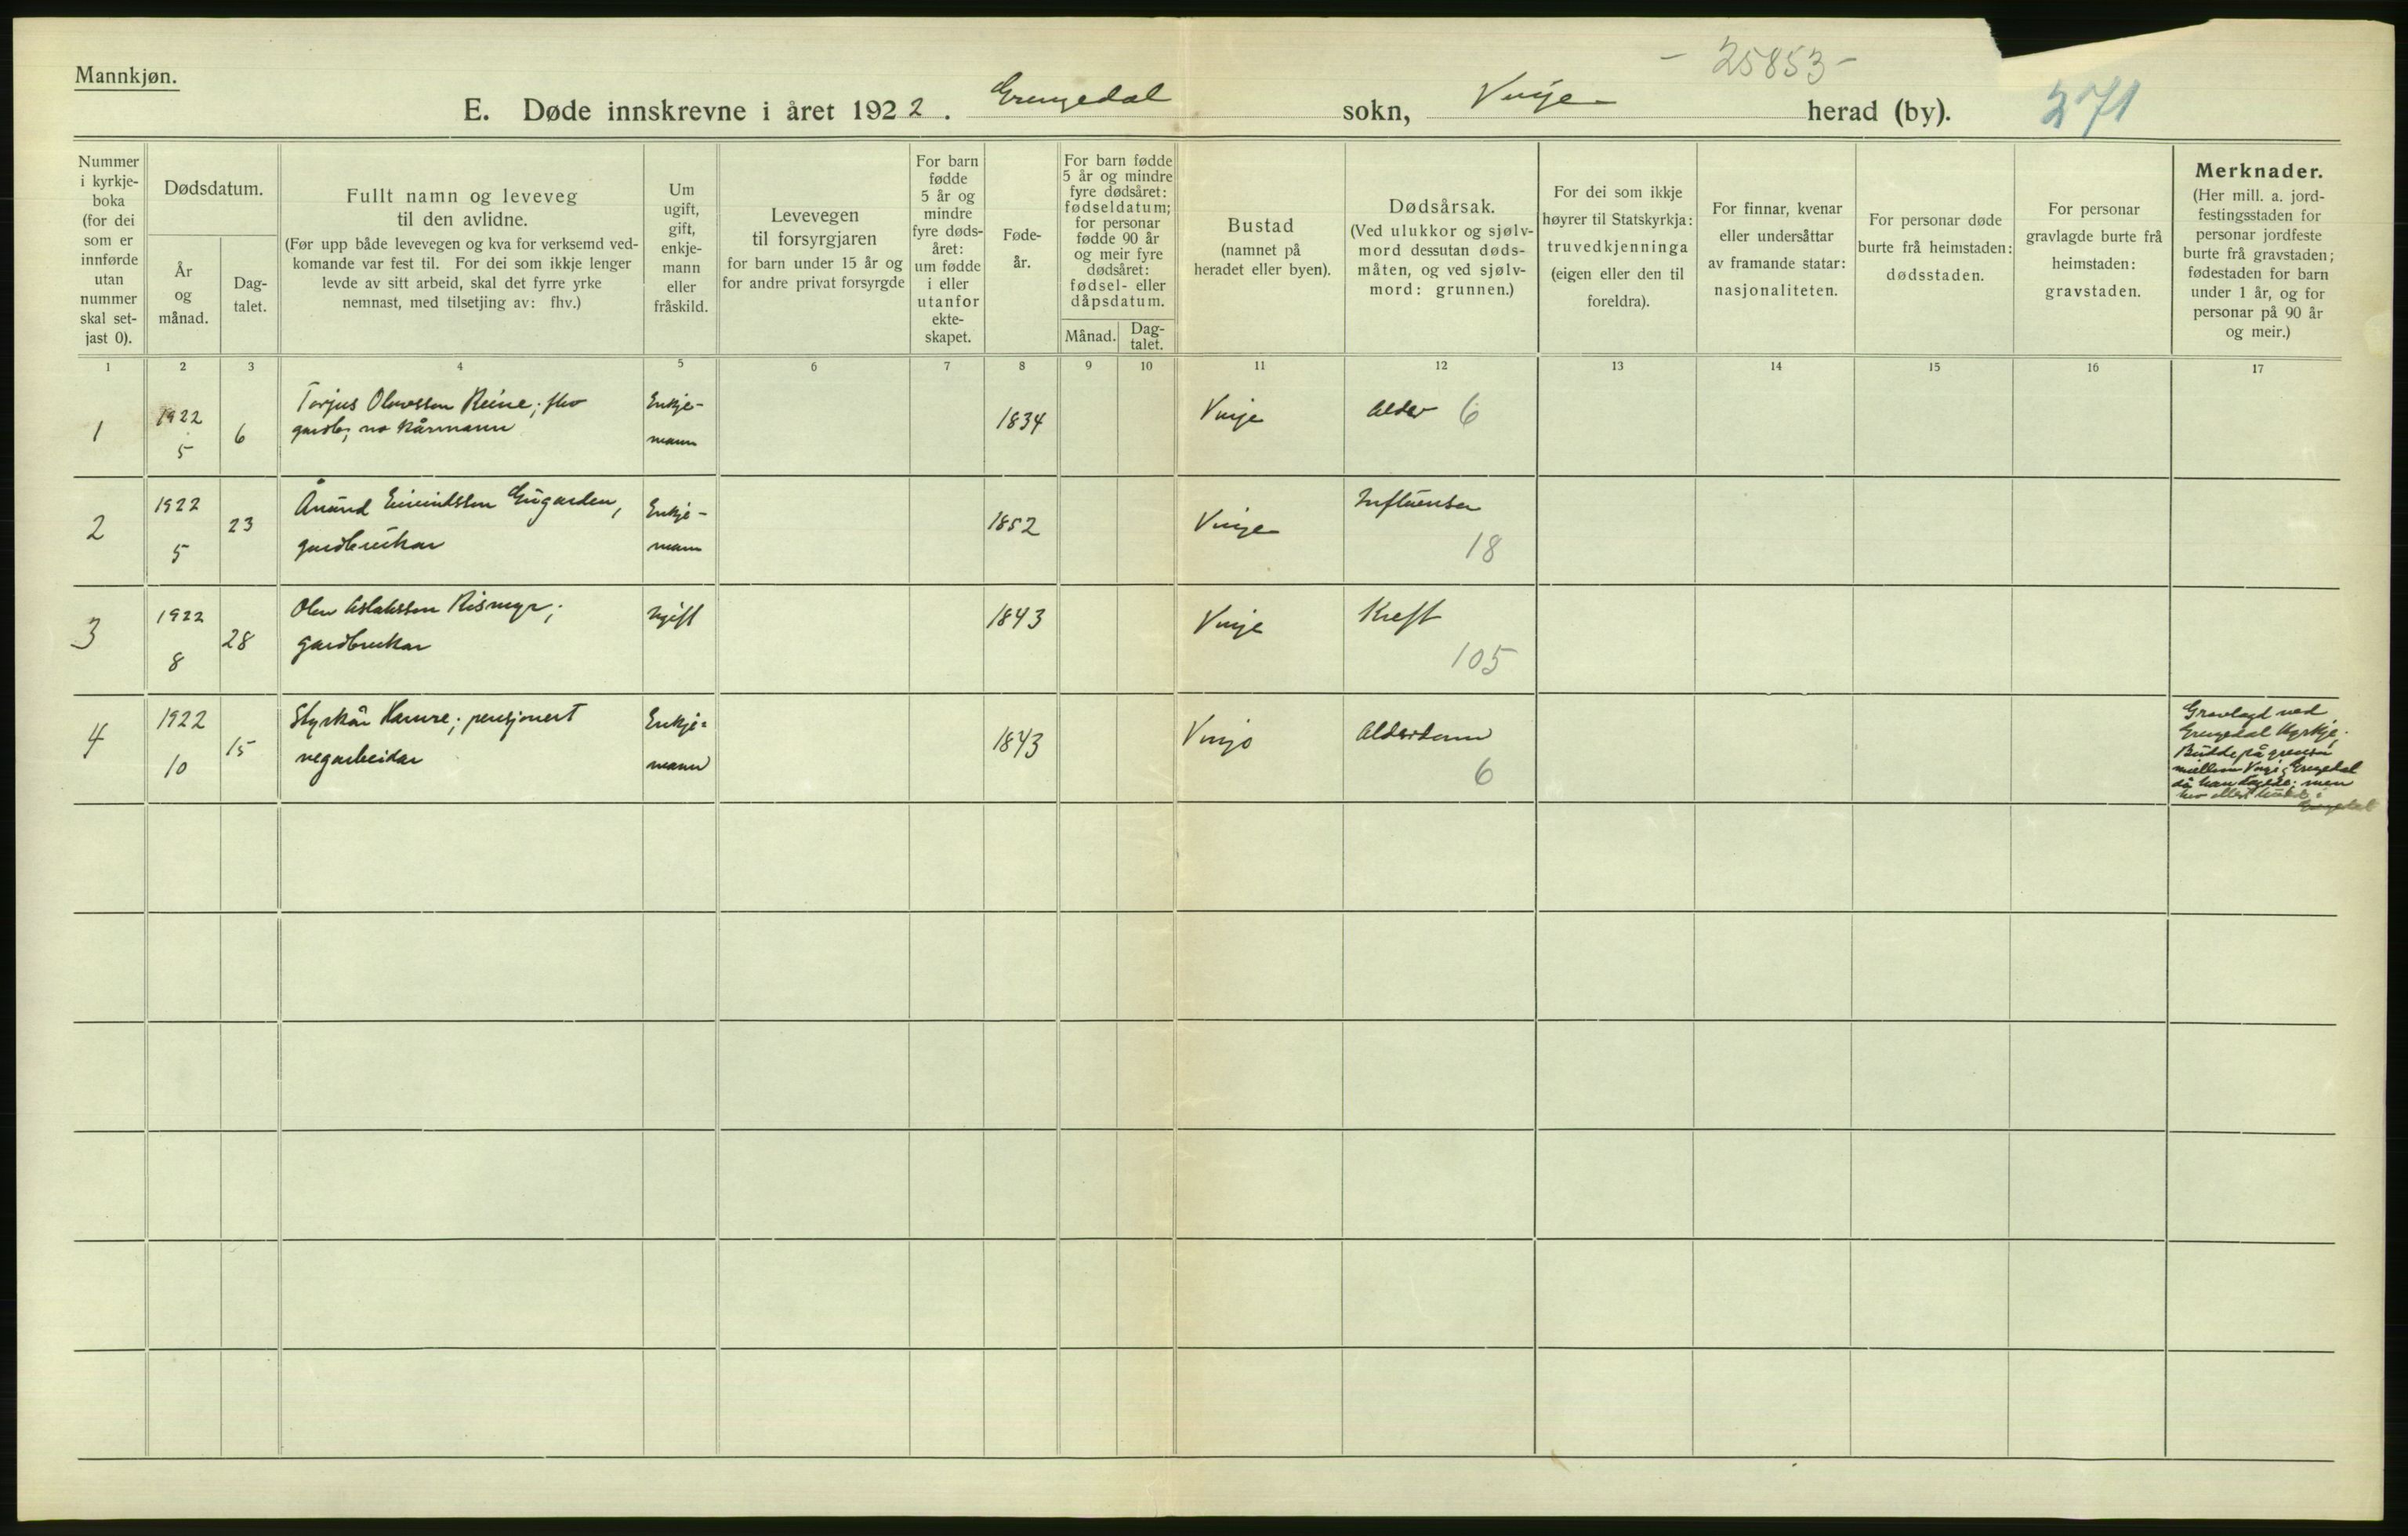 - 25853 -
Mannkjøn.
E. Døde innskrevne i året 1922. Grungedal sokn, Vinje herad (by). 271
Nummer
i kyrkje-
boka
(for dei
som er
innførde
utan
nummer
skal set-
jast 0).
Dødsdatum.
År
og
månad.
Dag-
talet.
Fullt namn og leveveg
til den avlidne.
(Før upp både levevegen og kva for verksemd ved-
komande var fest til. For dei som ikkje lenger
levde av sitt arbeid, skal det fyrre yrke
nemnast, med tilsetjing av: fhv.)
Um
ugift,
gift,
enkje-
mann
eller
fråskild.
Levevegen
til forsyrgjaren
for barn under 15 år og
for andre privat forsyrgde
For barn
fødde
5 år og
mindre
fyre døds-
året:
um fødde
i eller
utanfor
ekte-
skapet.
Føde-
år.
For barn fødde
5 år og mindre
fyre dødsåret:
fødseldatum;
for personar
fødde 90 år
og meir fyre
dødsåret:
fødsel- eller
dåpsdatum.
Månad.
Dag-
talet.
Bustad
(namnet på
heradet eller byen).
Dødsårsak.
(Ved ulukkor og sjølv-
mord dessutan døds-
måten, og ved sjølv-
mord: grunnen.)
For dei som ikkje
høyrer til Statskyrkja:
truvedkjenninga
(eigen eller den til
foreldra).
For finnar, kvenar
eller undersåttar
av framande statar:
nasjonaliteten.
For personar døde
burte frå heimstaden:
dødsstaden.
For personar
gravlagde burte frå
heimstaden:
gravstaden.
Merknader.
(Her mill. a. jord-
festingsstaden for
personar jordfeste
burte frå gravstaden;
fødestaden for barn
under 1 år, og for
personar på 90 år
og meir.)
1 2 3 4 5 6 7 8 9 10 11 12 13 14 15 16 17
1
1922
5
6
Torjus Olavsson Reine; fhv
gardb; no kårmann
Enkje-
mann
1834
Vinje
Alder 6
2
1922
5
23
Ånund Eivindsson Gugarden,
gardbrukar
Enkje-
mann
1852
Vinje
Influensa
18
3
1922
8
28
Olav Aslaksson Rismyr;
gardbrukar
Ugift
1843
Vinje
Kreft
105
4
1922
10
15
Styrkår Hamre; pensjonert
vegarbeidar
Enkje-
mann
1843
Vinje
Alderdom
6
Gravlagd ved
Grungedal Kyrkje.
Budde på grensa
mellom Vinje, Grungedal
då han døydde; men
hev elles
Grungedal